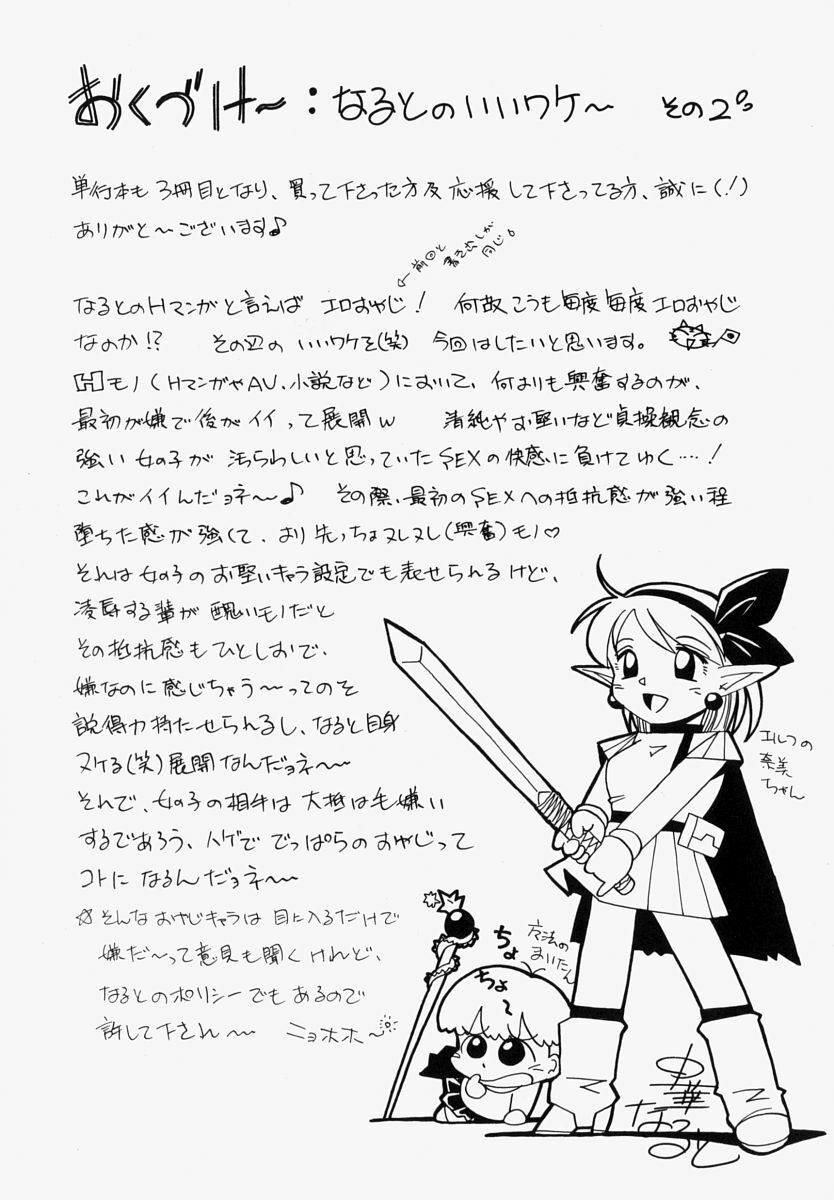 おくづけ〜：なるとのいいワケ〜 その2
単行本も3冊目となり、買って下さった方及応援して下さってる方、誠に(!)
ありがと〜ございます♪
←前回と
書き出しが
同じ。
なるとのHマンガと言えば エロおやじ! 何故こうも毎度毎度エロおやじ
なのか!? その辺の いいワケを(笑) 今回はしたいと思います。
Hモノ(HマンガやAV、小説など)において、何よりも興奮するのが、
最初が嫌で後がイイって展開w 清純やお堅いなど貞操観念の
強い女の子が 汚らわしいと思っていたSEXの快感に負けてゆく…!
これがイイんだョネ〜♪ その際、最初のSEXへの抵抗感が強い程
堕ちた感が強くて、より先っちょヌレヌレ(興奮)モノ♡
それは女の子のお堅いキャラ設定でも表せられるけど、
凌辱する輩が 醜いモノだと
その抵抗感もひとしおで、
嫌なのに感じちゃう〜ってのを
説得力持たせられるし、なると自身
ヌケる(笑)展開なんだョネ〜
それで、女の子の相手は 大抵は毛嫌い
するであろう、ハゲで でっぱらのおやじって
コトに なるんだョネ〜
☆そんなおやじキャラは 目に入るだけで
嫌だ〜って意見も聞くけれど、
なるとのポリシーでもあるので
許して下され〜 ニョホホ〜
エルフの
奈美
ちゃん
魔法の
まいたん
ちょ
ちょ〜
中華
なると